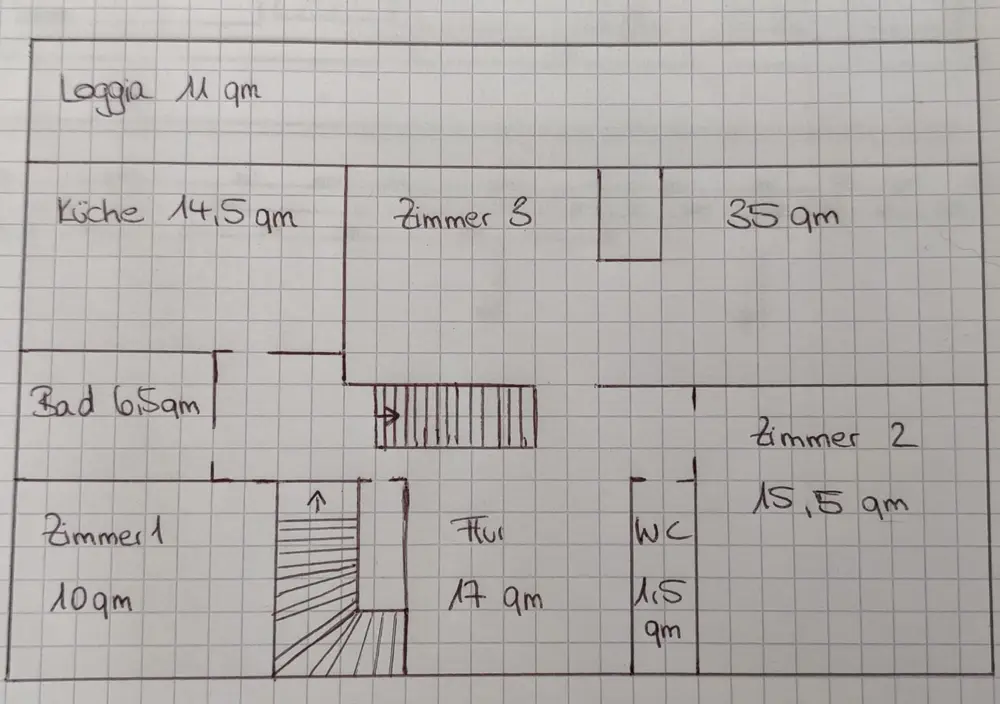 Loggia 11 qm
Küche 14,5 qm
Zimmer 3
35 qm
Bad 6,5qm
Zimmer 2
15,5 qm
Zimmer 1
10qm
Flur
17 qm
WC
1,5
qm